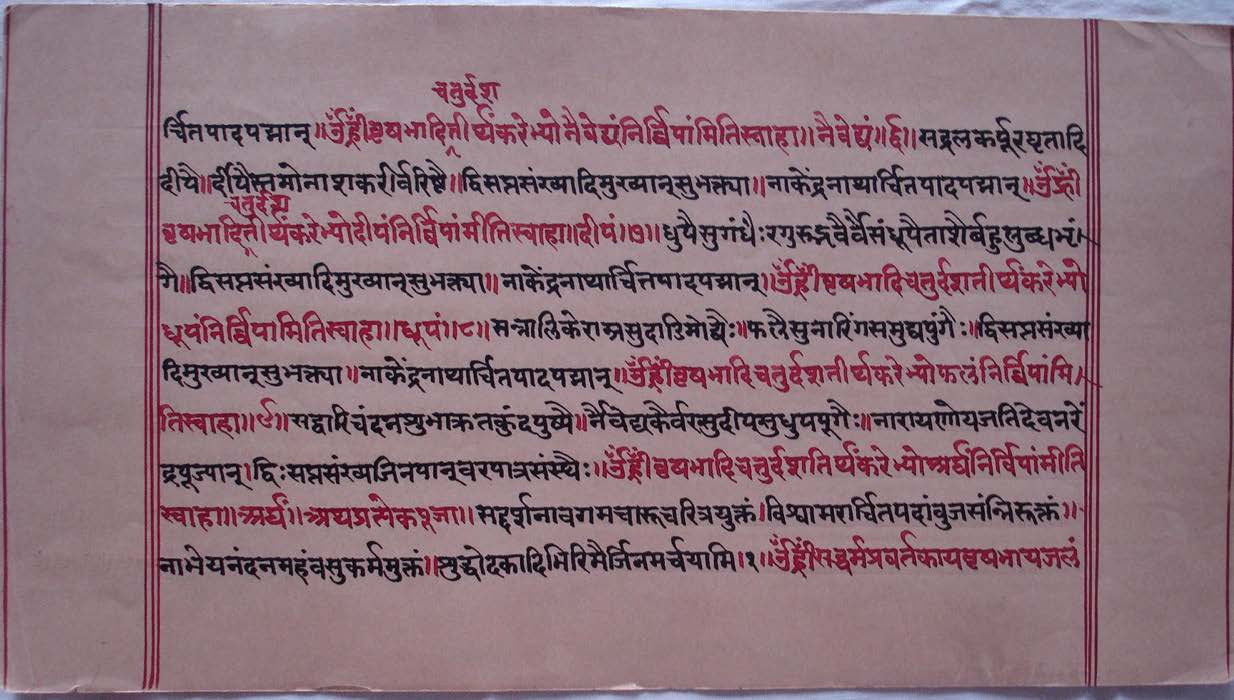 चतुर्दश
र्चितपादपद्मान्॥ॐह्रीँवृषभादितीर्थंकरेभ्योनैवेद्यंनिर्विपांमितिस्वाहा॥नैवेद्यं॥६॥सद्रलकर्पूरघृतादि
दीयै॥दीयैस्तमोनाशकरीर्वरिष्ठै॥द्विसप्तसंख्यादिमुख्यान्सुभक्त्या॥नाकेंद्रनाथार्चितपादपद्मान्॥ॐह्रीँ
चतुर्दश
वृषभादितीर्थंकरेभ्योदीपंनिर्विपांमीतिस्वाहा॥दीपं॥७॥धुपैसुगंधैःरगुरुद्रवैर्वैसंधूपैताशैर्बहुलुब्धभृं
गै॥द्विसप्तसंख्यादिमुख्यान्सुभक्त्या॥नाकेंद्रनाथार्चित्तपादपद्मान्॥ॐह्रीँवृषभादिचतुर्दशतीर्थंकरेभ्यो
धूपंनिर्विपामितिस्वाहा॥धूपं॥८॥सन्नालिकेराम्रसुदाडिमोद्यैः॥फलैसुनारिंगसमुद्यपुंगैः॥द्विसप्तसंख्या
दिमुख्यान्सुभक्त्या॥नाकेंद्रनाथार्चितपादपद्मान्॥ॐह्रीँवृषभादिचतुर्दशतीर्थंकरेभ्योफलंनिर्विपांमि
तिस्वाहा॥९॥सद्वारिचंदनशुभाक्षतकुंदपुष्पै॥नैर्वेद्यकैर्वरसुदीपसुधुपपूगैः॥नारायणेयजतिदेवनरें
द्रपूज्यान्।द्विःसप्तसंख्यजिनपान्वरपात्रसंस्थैः॥ॐह्रीँवृषभादिचतुर्दशतिर्थंकरेभ्योअर्घंनिर्विपांमीति
स्वाहा॥अर्घं॥अथप्रत्येकपूजा॥सद्दर्शनावगमचारुचरित्रयुक्तं।विश्वामरार्चितपदांबुजसंन्निरुक्तं॥
नाभेयनंदनमहंवसुकर्ममुक्तं॥शुद्धोदकादिभिरिमैर्जिनमर्चयामि।१॥ॐह्रीँसद्धर्मप्रवर्तकायवृषभायजलं